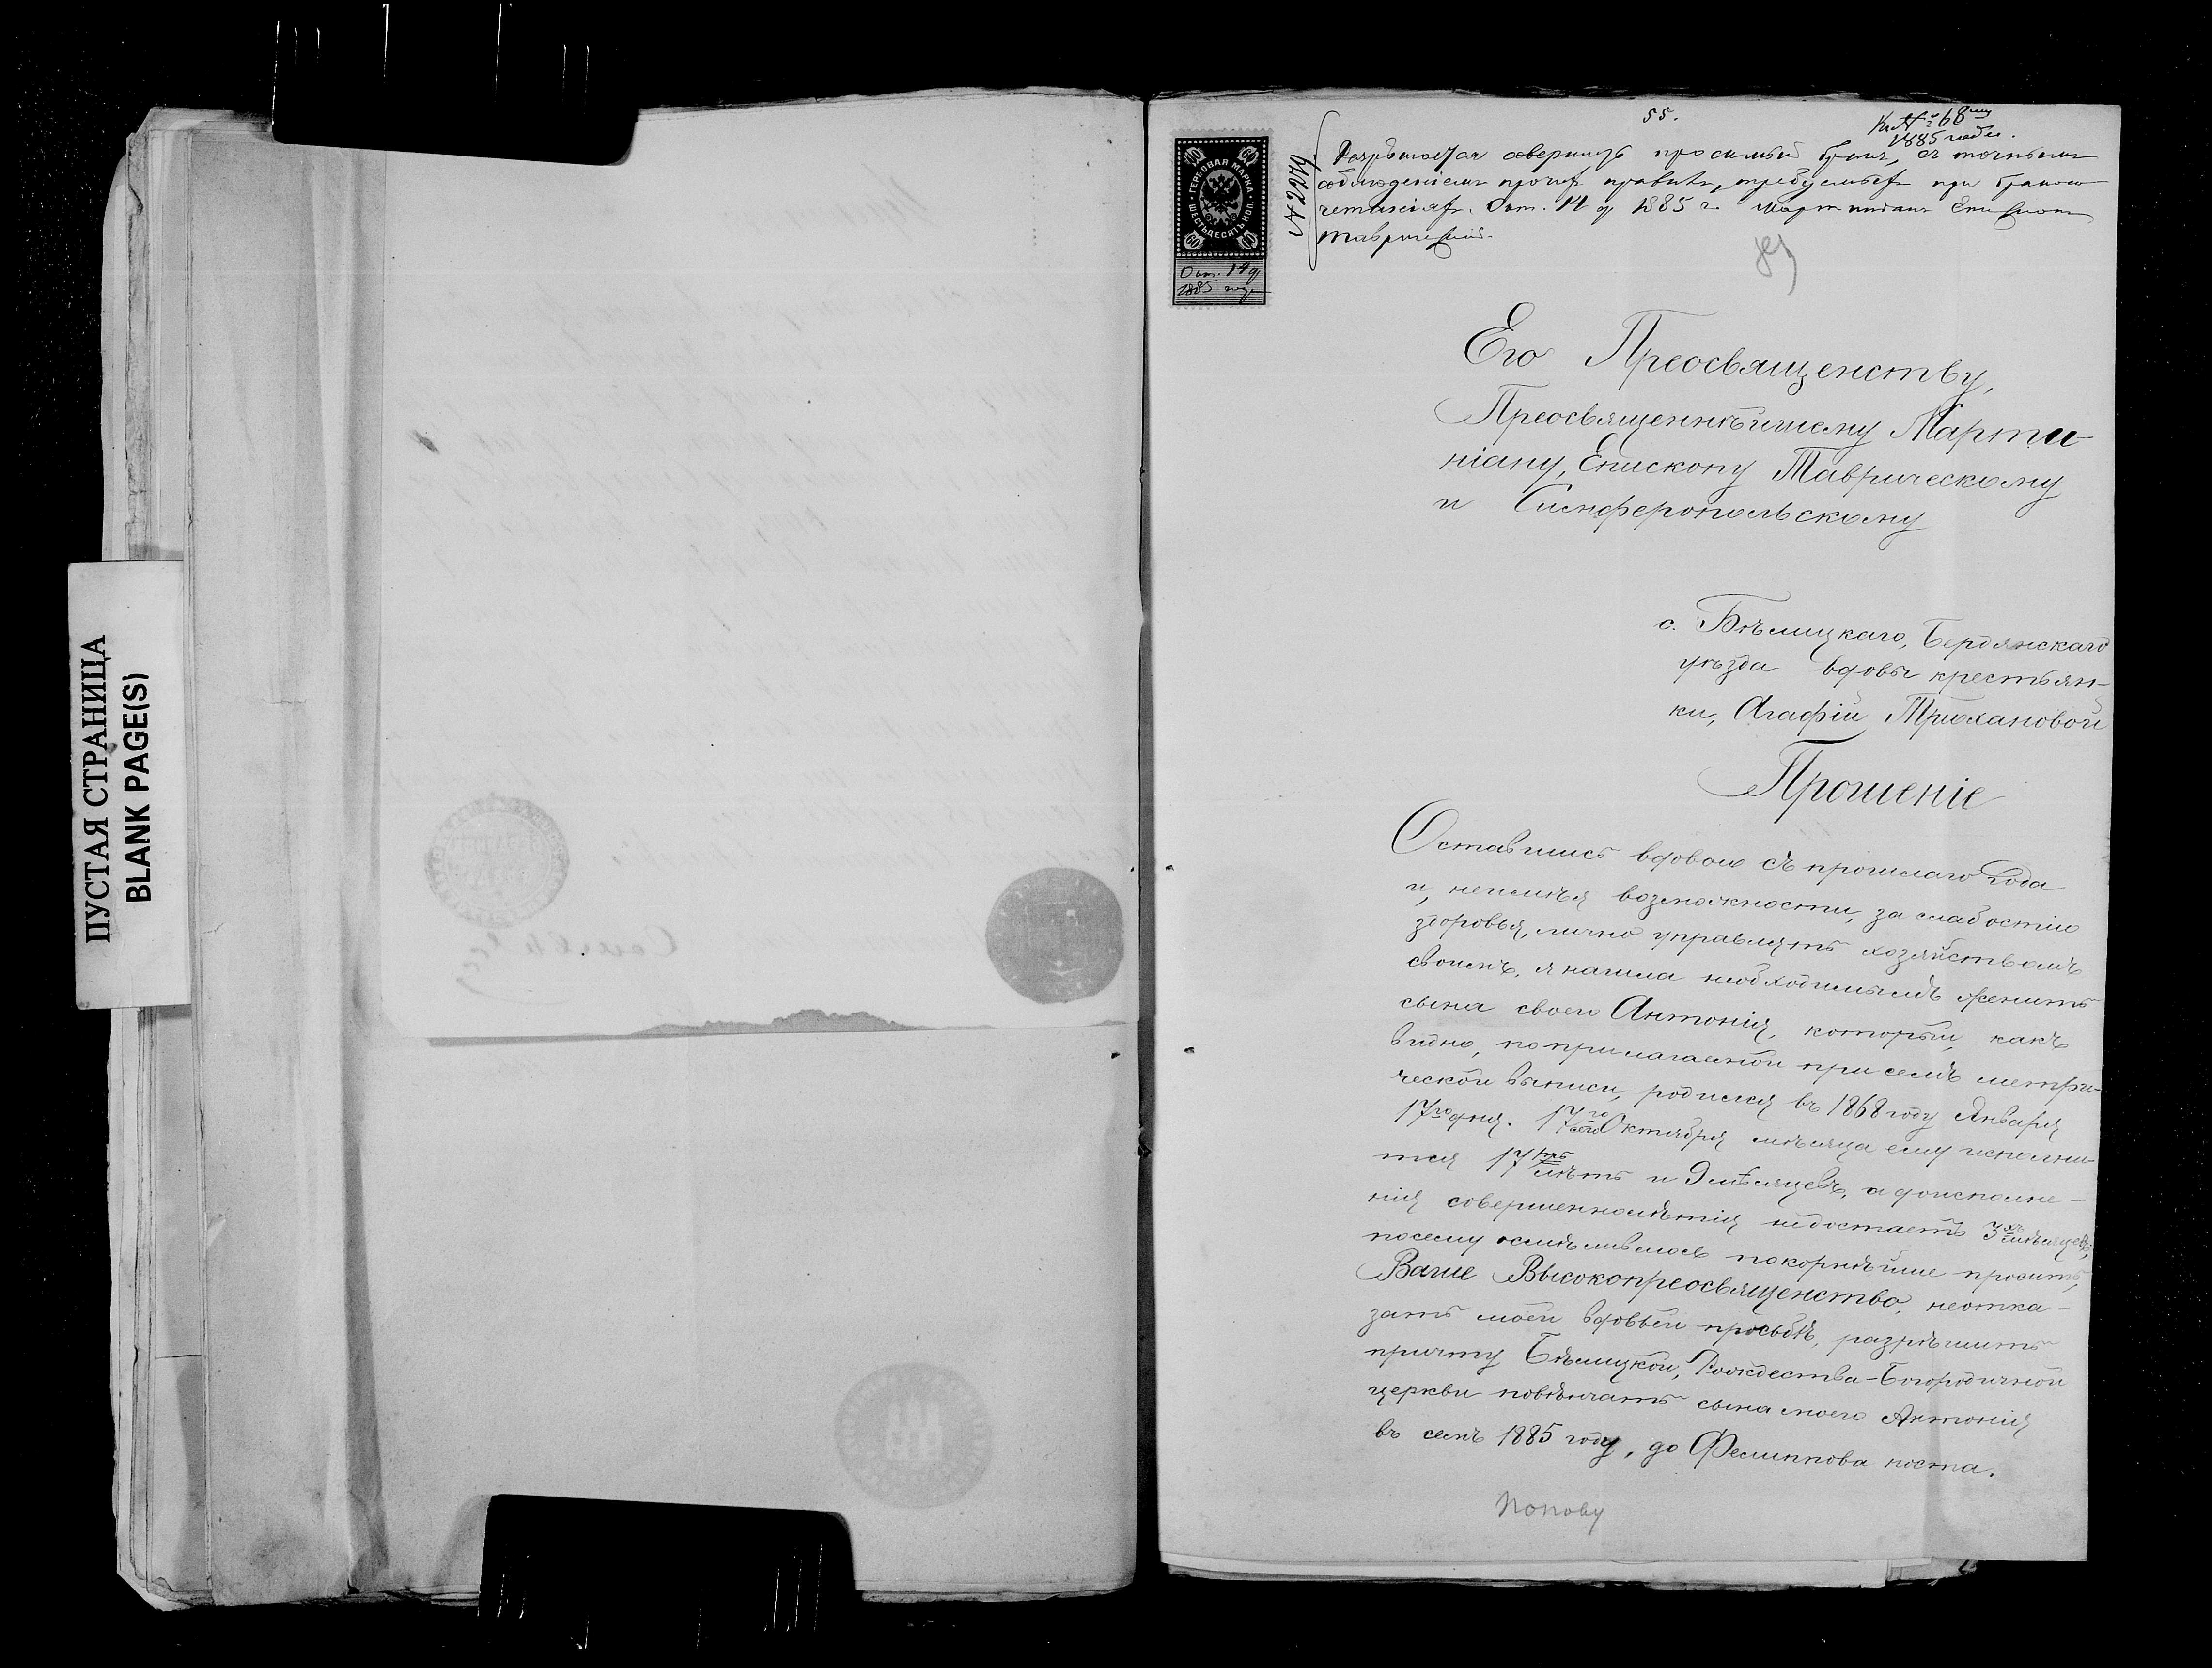 ПУСТАЯ СТРАНИЦА
BLANK PAGE(S)
55.
Къ № 68
1885 года.
№ 2279
Разрѣшается совершить просимый бракъ, съ точнымъ
соблюденіемъ прочихъ правилъ, требуемыхъ при бракосо
четаніяхъ. Окт. 14 д 1885 г. Мартиніанъ Епископъ
Таврическій.
ГЕРБОВАЯ МАРКА
ШЕСТЬДЕСЯТЪ КОП.
60
Окт. 14 д
1885 года
Его Преосвященству,
Преосвященнѣйшему Марти-
ніану, Епископу Таврическому
и Симферопольскому
с. Бѣлицкаго, Бердянскаго
уѣзда вдовы крестьян-
ки, Агафіи Трюхановой
Прошеніе
Оставшись вдовою съ прошлаго года
и, неимѣя возможности, за слабостію
здоровья, лично управлять хозяйствомъ
своимъ, я нашла необходимымъ женить
сына своего Антонія, который, какъ
видно, по прилагаемой при семъ метри-
ческой выписи, родился въ 1868 году Января
17го дня. 17го сего Октября мѣсяца ему исполни-
тся 17ть лѣтъ и 9 мѣсяцевъ, а до исполне-
нія совершеннолѣтія недостаетъ 3хъ мѣсяцевъ,
посему осмѣливаюсь покорнѣйше просить,
Ваше Высокопреосвященство, неотка-
зать моей вдовьей просьбѣ, разрѣшить
причту Бѣлицкой, Рождества-Богородичной
церкви повѣнчать сына моего Антонія
въ семъ 1885 году, до Филиппова поста.
Попову